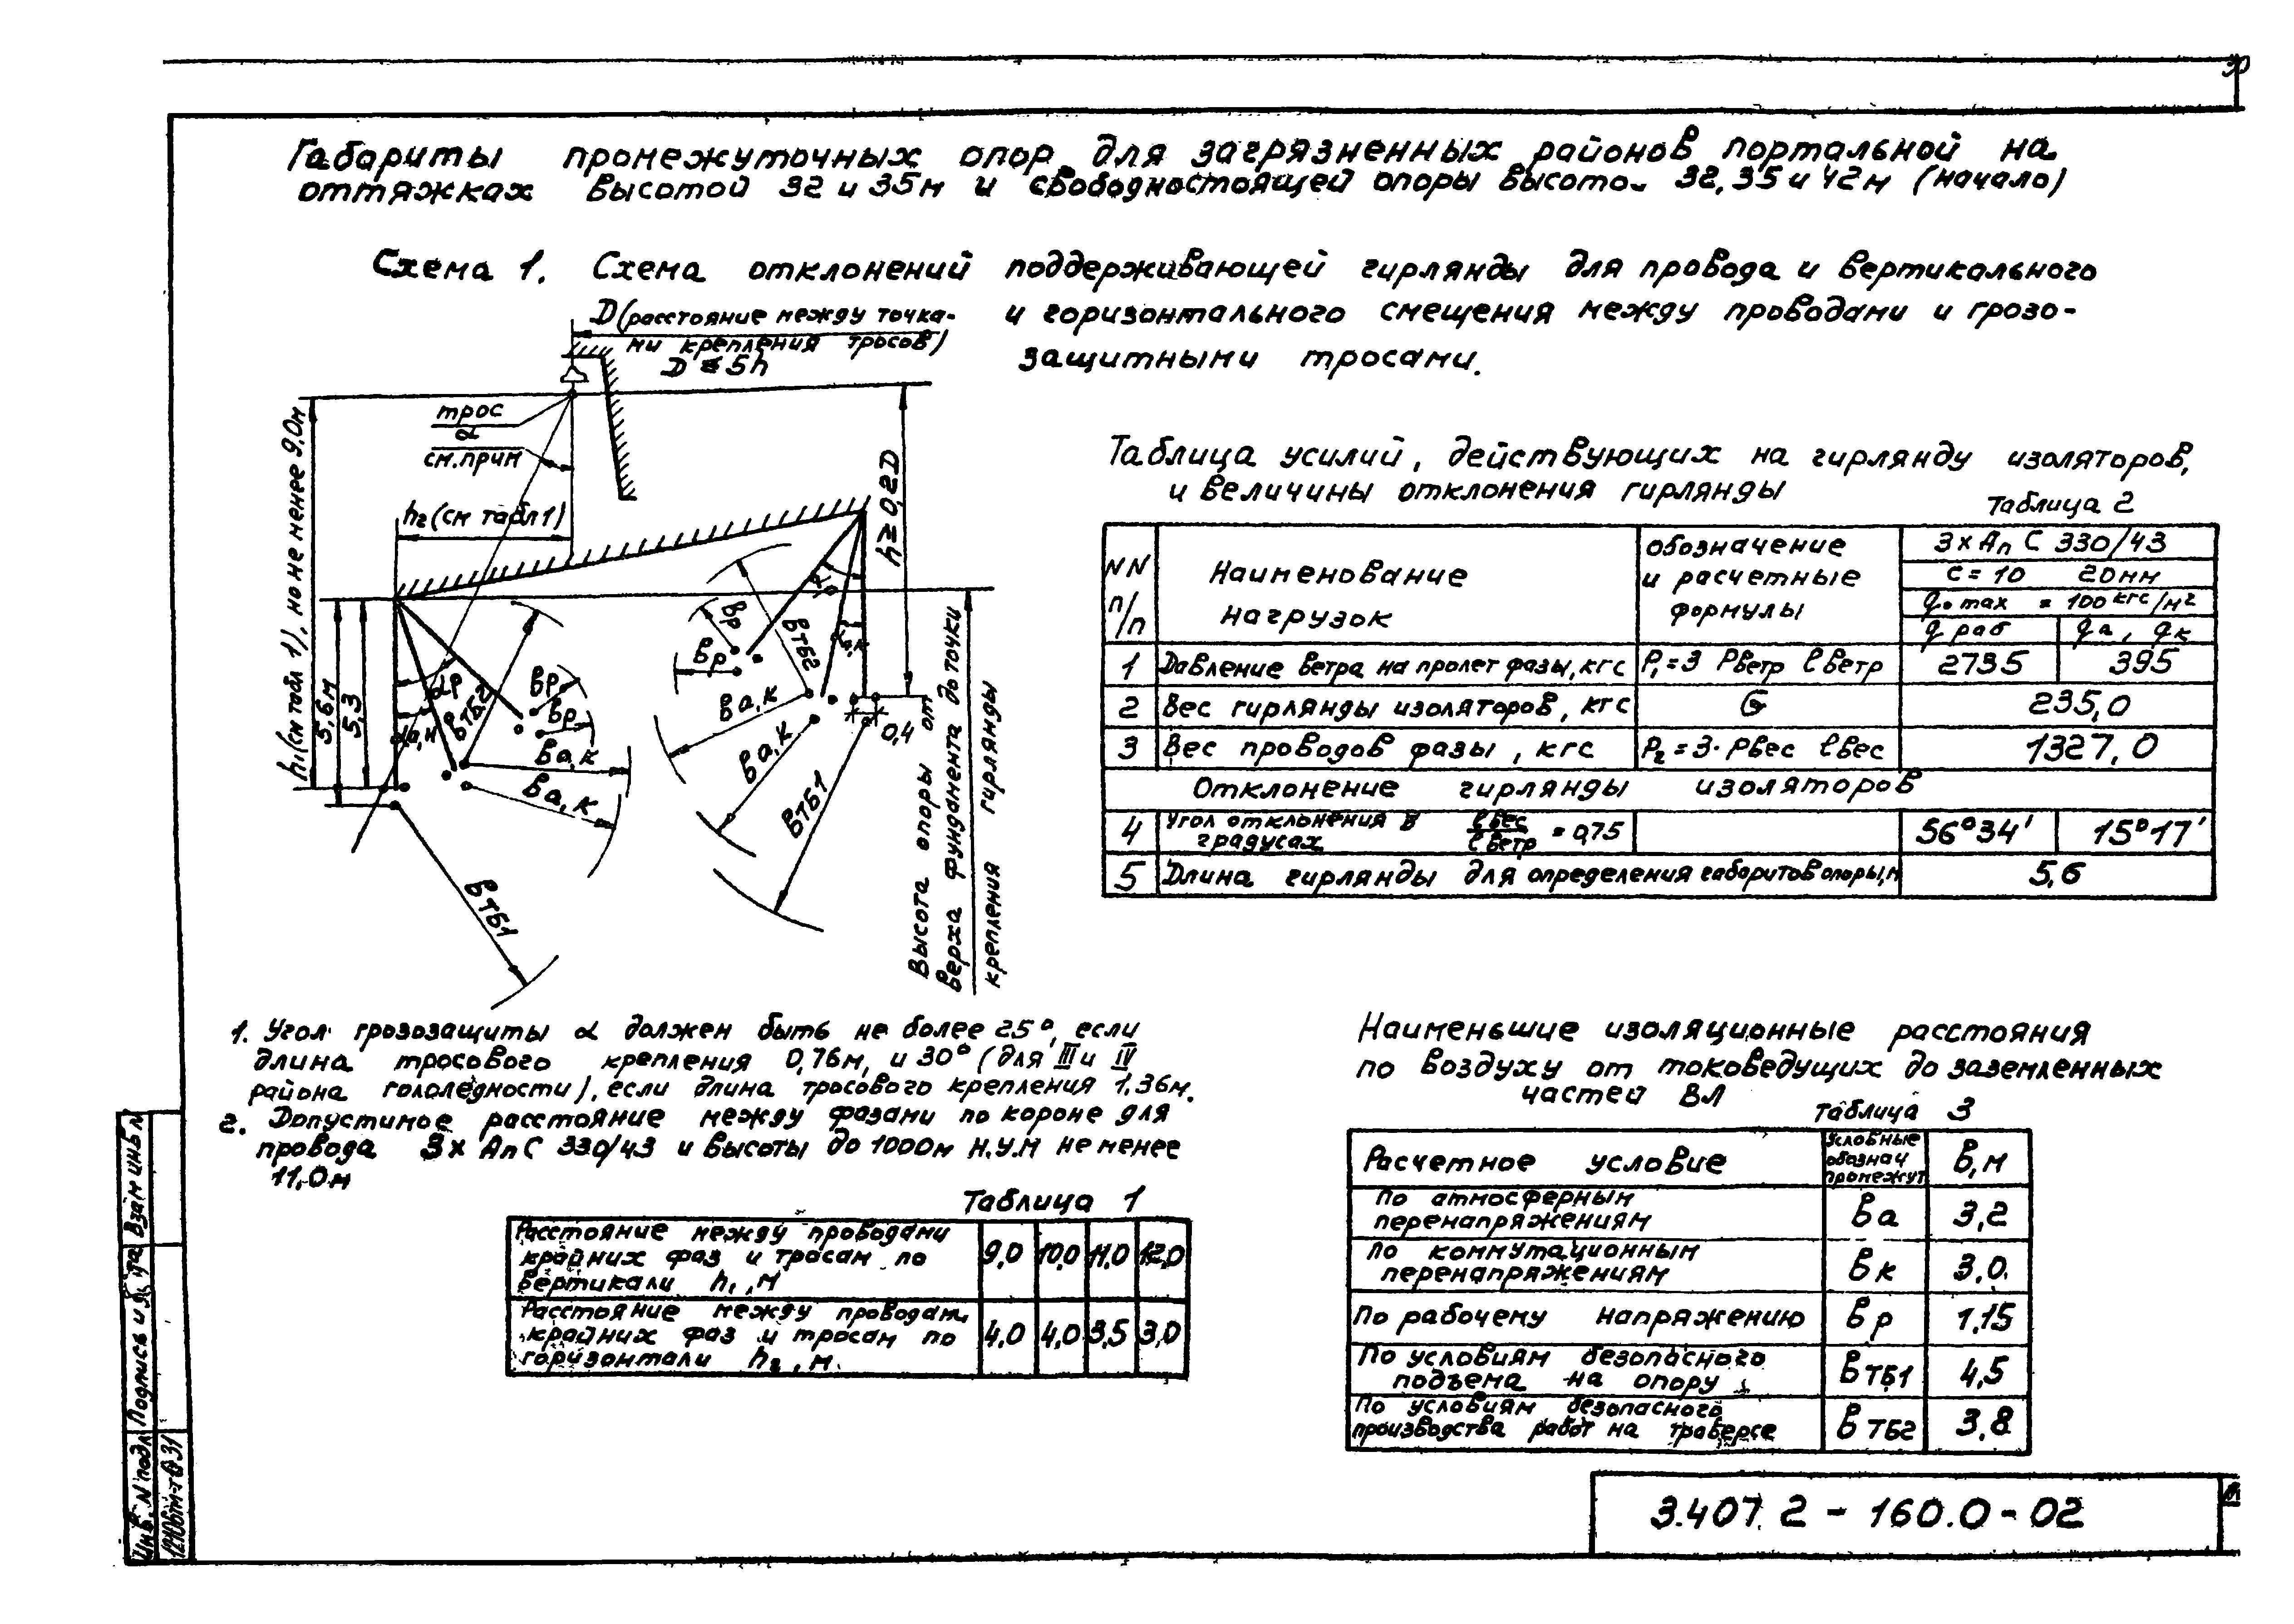 30
Габариты промежуточных опор для загрязненных районов портальной на
оттяжках высотой 32 и 35м и свободностоящей опоры высото. 32, 35 и 42м (начало)
Схема 1. Схема отклонений поддерживающей гирлянды для провода и вертикального
и горизонтального смещения между проводами и грозо-
защитными тросами.
D (расстояние между точка-
ми крепления тросов)
D ≤ 5h
трос
α
см. прим
h2 (см табл 1)
h1 (см табл 1), но не менее 9.0м
5,6м
5,3
h ≥ 0,2D
αр
αа,к
ВТБ2
Вр
Вр
Ва,к
Ва,к
ВТБ1
αр
αа,к
Вр
Вр
ВТБ2
Ва,к
Ва,к
ВТБ1
0,4
Высота опоры от
верха фундамента до точки
крепления гирлянды
Таблица усилий, действующих на гирлянду изоляторов,
и величины отклонения гирлянды
Таблица 2
NN п/п
Наименование нагрузок
обозначение и расчетные формулы
3 х Ап С 330/43
с = 10 20мм
q0 max = 100 кгс/м2
q раб qа, qк
1 Давление ветра на пролет фазы, кгс P1 = 3 Pветр lветр 2735 395
2 Вес гирлянды изоляторов, кгс G 235,0
3 Вес проводов фазы, кгс P2 = 3· Pвес lвес 1327,0
Отклонение гирлянды изоляторов
4 Угол отклонения в градусах lвес/lветр = 0,75 56°34' 15°17'
5 Длина гирлянды для определения габаритов опоры, м 5,6
1. Угол грозозащиты α должен быть не более 25°, если
длина тросового крепления 0,76м, и 30° (для III и IV
района гололедности), если длина тросового крепления 1,36м.
2. Допустимое расстояние между фазами по короне для
провода 3х АпС 330/43 и высоты до 1000м н.у.м не менее
11.0м
Таблица 1
Расстояние между проводами
крайних фаз и тросам по
вертикали h1, м 9,0 10,0 11,0 12,0
Расстояние между проводам.
крайних фаз и тросам по
горизонтали h2, м. 4,0 4,0 3,5 3,0
Наименьшие изоляционные расстояния
по воздуху от токоведущих до заземленных
частей ВЛ
Таблица 3
Расчетное условие
Условные обознач промежут
В, м
По атмосферным
перенапряжениям Ва 3,2
По коммутационным
перенапряжениям Вк 3,0
По рабочему напряжению Вр 1.15
По условиям безопасного
подъема на опору ВТБ1 4,5
По условиям безопасного
производства работ на траверсе ВТБ2 3,8
Инв. N подл Подпись и дата Взам инв N
3.407.2 - 160.0 - 02